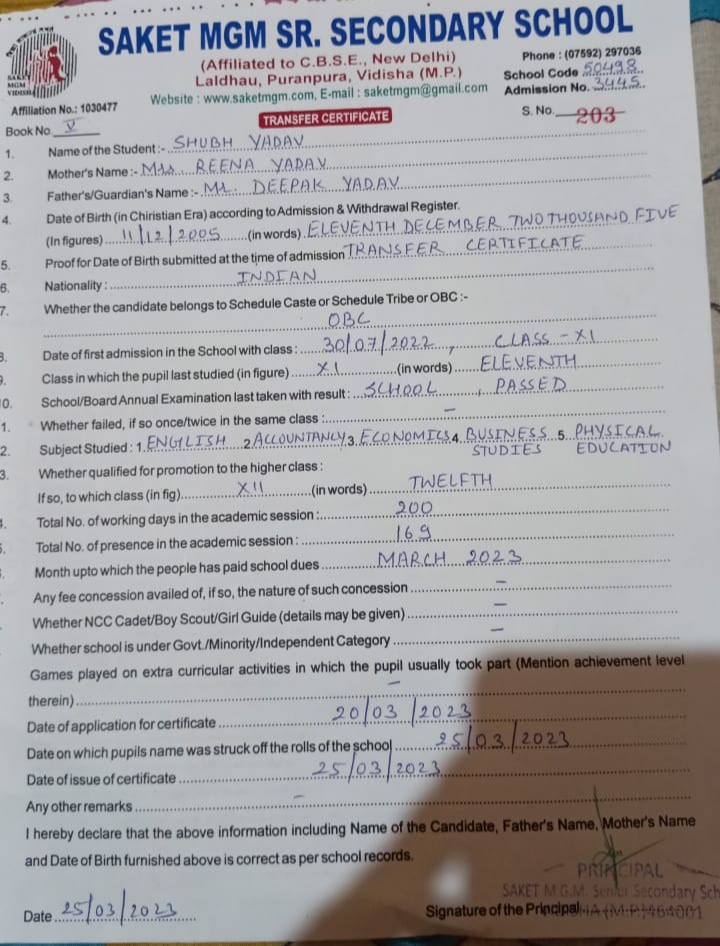 SAKET MGM SR. SECONDARY SCHOOL
(Affiliated to C.B.S.E., New Delhi)
Laldhau, Puranpura, Vidisha (M.P.)
Website : www.saketmgm.com, E-mail : saketmgm@gmail.com
Phone : (07592) 297036
School Code 50498
Admission No. 3445
SAKET
MGM
VIDISHA
Affiliation No.: 1030477
Book No. V
TRANSFER CERTIFICATE
S. No. 203
1. Name of the Student:- SHUBH YADAV
2. Mother's Name :- Mrs. REENA YADAV
3. Father's/Guardian's Name :- Mr. DEEPAK YADAV
4. Date of Birth (in Chiristian Era) according to Admission & Withdrawal Register.
(In figures) 11/12/2005 (in words) ELEVENTH DECEMBER TWO THOUSAND FIVE
5. Proof for Date of Birth submitted at the time of admission TRANSFER CERTIFICATE
6. Nationality : INDIAN
7. Whether the candidate belongs to Schedule Caste or Schedule Tribe or OBC :-
OBC
8. Date of first admission in the School with class : 30/07/2022, CLASS - XI
9. Class in which the pupil last studied (in figure) XI (in words) ELEVENTH
0. School/Board Annual Examination last taken with result : SCHOOL, PASSED
1. Whether failed, if so once/twice in the same class : –
2. Subject Studied : 1. ENGLISH 2 ACCOUNTANCY 3. ECONOMICS 4. BUSINESS STUDIES 5. PHYSICAL EDUCATION
3. Whether qualified for promotion to the higher class :
If so, to which class (in fig) XII (in words) TWELFTH
4. Total No. of working days in the academic session : 200
5. Total No. of presence in the academic session : 169
Month upto which the people has paid school dues MARCH 2023
Any fee concession availed of, if so, the nature of such concession –
Whether NCC Cadet/Boy Scout/Girl Guide (details may be given) –
Whether school is under Govt./Minority/Independent Category –
Games played on extra curricular activities in which the pupil usually took part (Mention achievement level
therein) –
Date of application for certificate 20/03/2023
Date on which pupils name was struck off the rolls of the school 25/03/2023
Date of issue of certificate 25/03/2023
Any other remarks –
I hereby declare that the above information including Name of the Candidate, Father's Name, Mother's Name
and Date of Birth furnished above is correct as per school records.
PRINCIPAL
SAKET M.G.M. Senior Secondary Sch
Date 25/03/2023
Signature of the Principal (M.P.) 464001